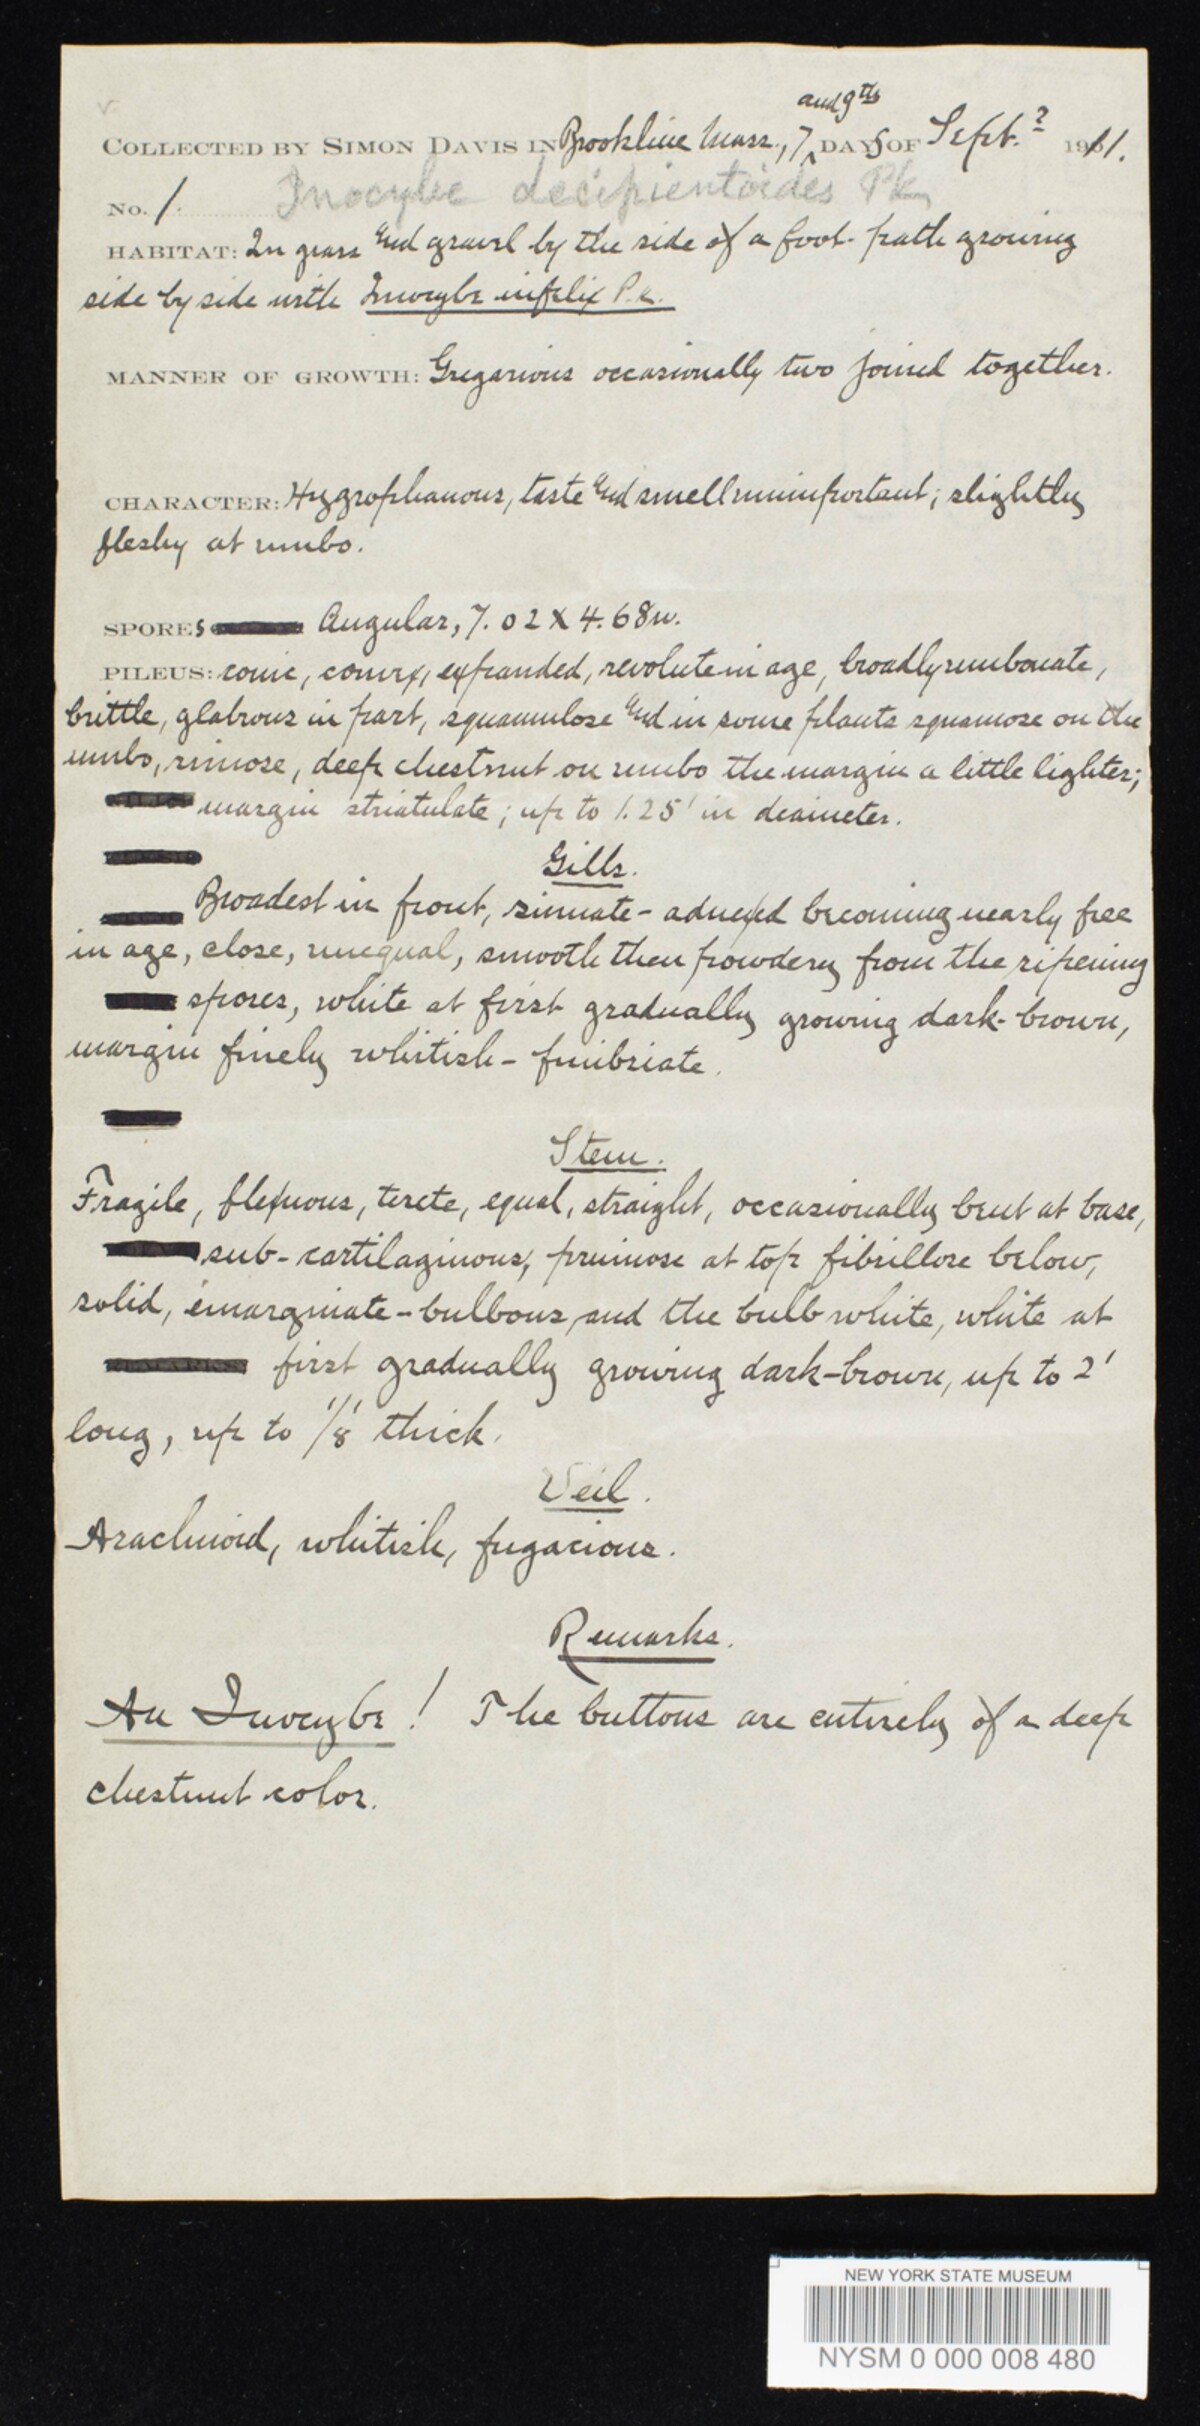 and 9th
COLLECTED BY SIMON DAVIS IN Brookline Mass., 7, DAYS OF Sept. ? 1911.
No. 1. Inocybe decipientoides Pk
HABITAT: In grass and gravel by the side of a foot-path growing
side by side with Inocybe infelix Pk.
MANNER OF GROWTH: Gregarious occasionally two joined together.
CHARACTER: Hygrophanous, taste and smell unimportant; slightly
fleshy at umbo.
SPORES Angular, 7.02 X 4.68u.
PILEUS: conic, convex, expanded, revolute in age, broadly umbonate,
brittle, glabrous in part, squamulose and in some plants squamose on the
umbo, rimose, deep chestnut on umbo the margin a little lighter;
margin striatulate; up to 1.25' in diameter.
Gills.
Broadest in front, sinuate-adnexed becoming nearly free
in age, close, unequal, smooth then powdery from the ripening
spores, white at first gradually growing dark-brown,
margin finely whitish-fimbriate.
Stem.
Fragile, flexuous, terete, equal, straight, occasionally bent at base,
sub-cartilaginous, pruinose at top fibrillose below,
solid, emarginate-bulbous, and the bulb white, white at
first gradually growing dark-brown, up to 2'
long, up to 1/8' thick.
Veil.
Arachnoid, whitish, fugacious.
Remarks.
An Inocybe! The buttons are entirely of a deep
chestnut color.
NEW YORK STATE MUSEUM
NYSM 0 000 008 480